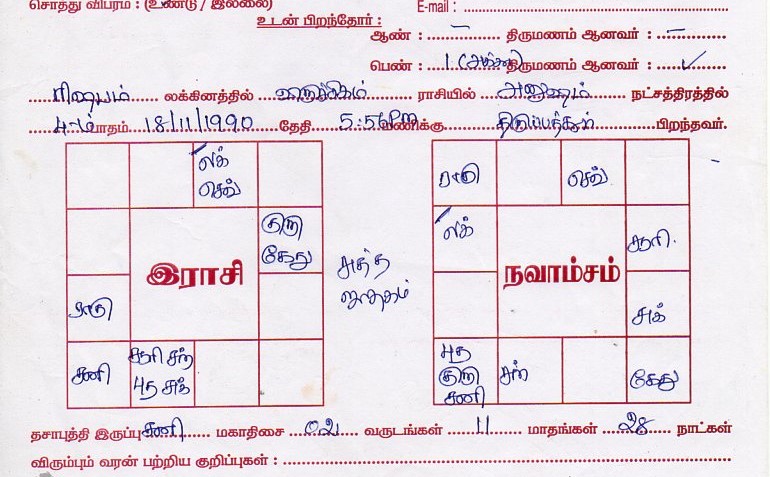 சொத்து விபரம் : (உண்டு / இல்லை) E-mail :
உடன் பிறந்தோர் :
ஆண் : – திருமணம் ஆனவர் : –
பெண் : 1 திருமணம் ஆனவர் : ✓
ரிஷபம் லக்கினத்தில் விருச்சிகம் ராசியில் அனுஷம் நட்சத்திரத்தில்
4-ம் பாதம் 18/11/1990 தேதி மணிக்கு பிறந்தவர்.
லக் செவ்
குரு கேது
இராசி
ராகு
சனி
சூரி சந் புத சுக்
சுத்த ஜாதகம்
ராகு செவ்
லக் சூரி
நவாம்சம்
சுக்
புத குரு சனி சந் கேது
தசாபுத்தி இருப்பு சனி மகாதிசை 02 வருடங்கள் 11 மாதங்கள் 28 நாட்கள்
விரும்பும் வரன் பற்றிய குறிப்புகள் :